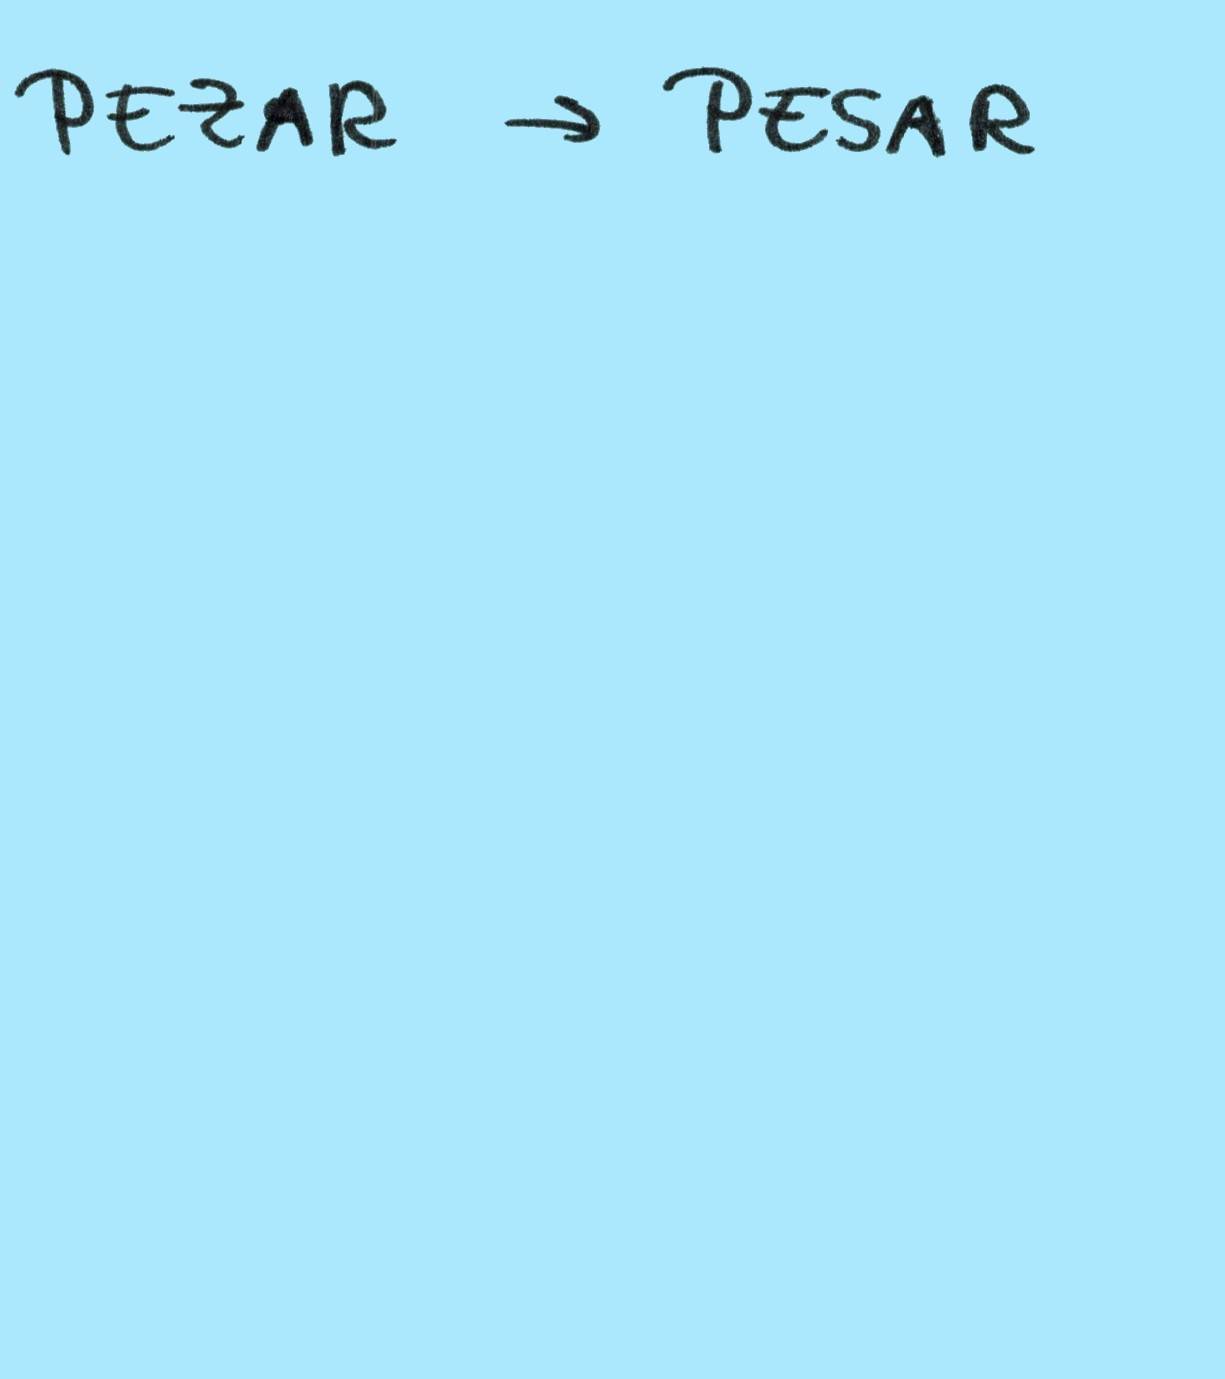 PEZAR → PESAR